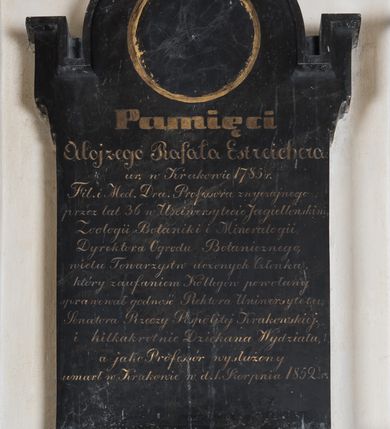 Pamięci
Alojzego Rafała Estreichera
ur. w Krakowie 1785 r.
Fil. i Med. Dra. Profesora zwyczajnego
przez lat 36 w Uniwersytecie Jagiellońskim,
Zoologii Botaniki i Mineralogii
Dyrektora Ogrodu Botanicznego,
wielu Towarzystw uczonych Członka,
który zaufaniem Kollegów powołany
sprawował godność Rektora Uniwersytetu,
Senatora Rzeczy Pospolitej Krakowskiéj,
i kilkakrotnie Dziekana Wydziału,
a jako Profesór wysłużony
umarł w Krakowie w d. 1. Sierpnia 1852 r.